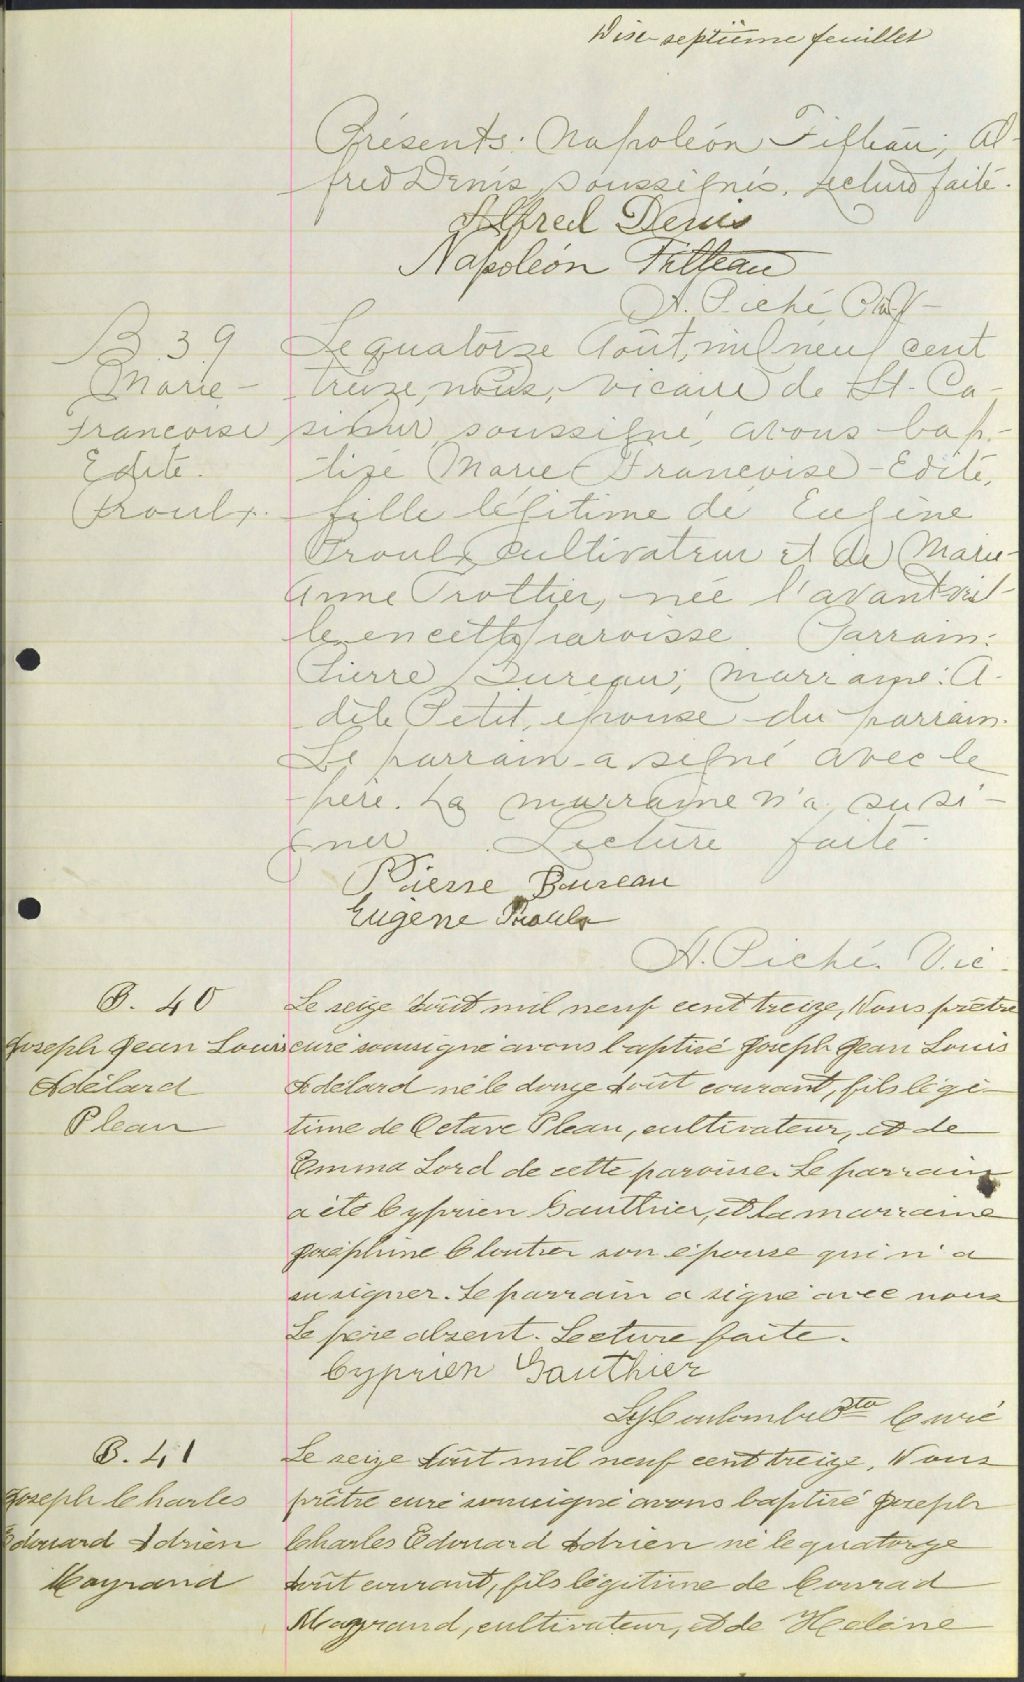 Dix-septième feuillet
Présents: Napoléon Filteau; Al-
fred Denis soussignés. Lecture faite.
Alfred Denis
Napoléon Filteau
A. Piché
B. 39
Marie-
Françoise
Edite.
Proulx.
Le quatorze Août, mil neuf cent
treize, nous, vicaire de St-Ca-
simir, soussigné, avons bap-
tisé Marie-Françoise-Edite,
fille légitime de Eugène
Proulx cultivateur et de Marie-
Anne Trottier, née l'avant veil-
le en cette paroisse. Parrain:
Pierre Bureau; marraine: A-
dèle Petit, épouse du parrain.
Le parrain a signé avec le
père. La marraine n'a su si-
gner. Lecture faite.
Pierre Bureau
Eugène Proulx
A. Piché. Vic.
B. 40
Joseph Jean Louis
Adélard
Plean
Le seize Août mil neuf cent treize, Nous prêtre
curé soussigné avons baptisé Joseph Jean Louis
Adélard né le douze Août courant, fils légi-
time de Octave Plean, cultivateur, et de
Emma Lord de cette paroisse. Le parrain
a été Cyprien Gauthier, et la marraine
Joséphine Cloutier son épouse qui n'a
su signer. Le parrain a signé avec nous
Le père absent. Lecture faite.
Cyprien Gauthier
Coulombe Ptre Curé
B. 41
Joseph Charles
Edouard Adrien
Mayrand
Le seize Août mil neuf cent treize, Nous
prêtre curé soussigné avons baptisé Joseph
Charles Edouard Adrien né le quatorze
Août courant, fils légitime de Conrad
Mayrand, cultivateur, et de Hélène